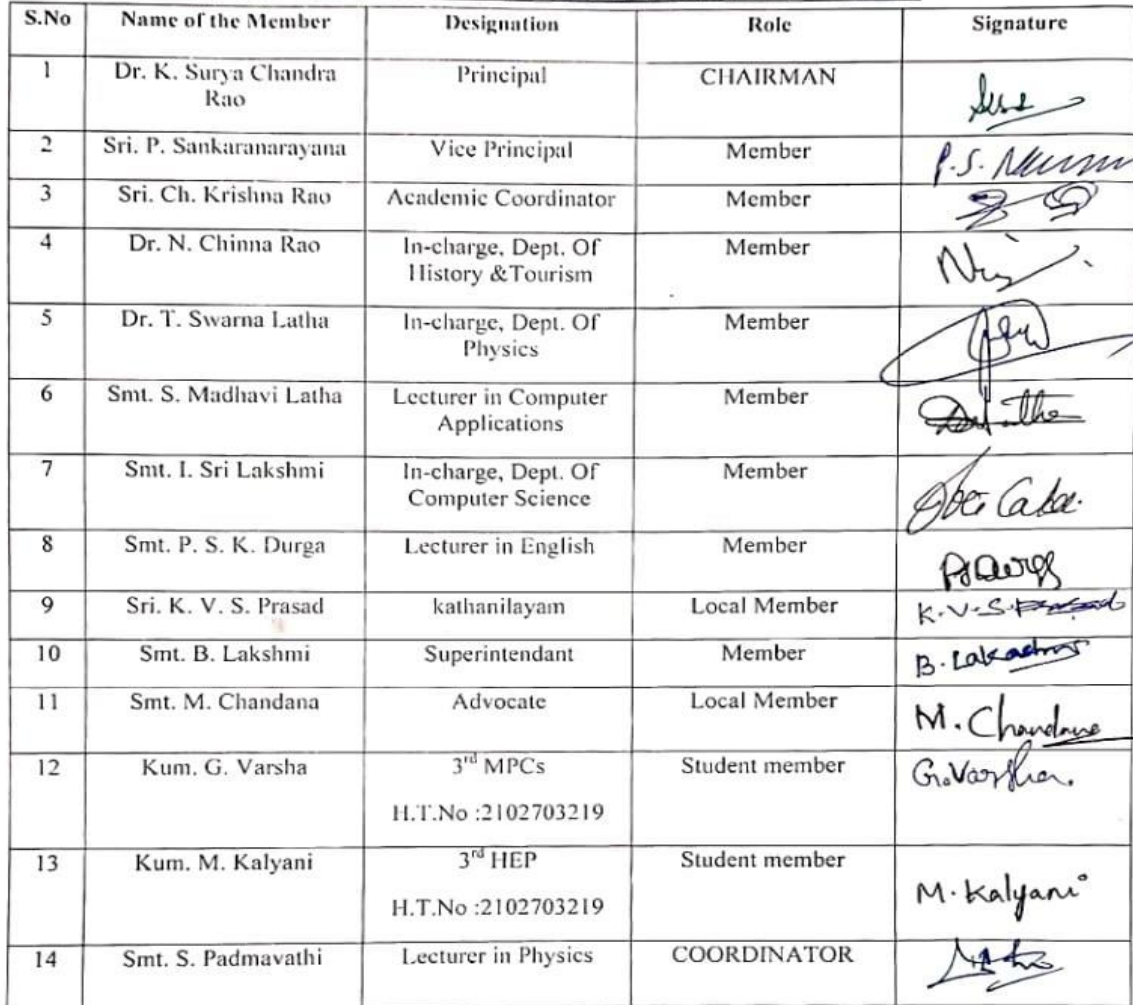 S.No Name of the Member Designation Role Signature
1 Dr. K. Surya Chandra Principal CHAIRMAN
Rao
2 Sri. P. Sankaranarayana Vice Principal Member P.S.
3 Sri. Ch. Krishna Rao Academic Coordinator Member
4 Dr. N. Chinna Rao In-charge, Dept. Of Member
History &Tourism
5 Dr. T. Swarna Latha In-charge, Dept. Of Member
Physics
6 Smt. S. Madhavi Latha Lecturer in Computer Member
Applications
7 Smt. I. Sri Lakshmi In-charge, Dept. Of Member
Computer Science
8 Smt. P. S. K. Durga Lecturer in English Member
9 Sri. K. V. S. Prasad kathanilayam Local Member K.V.S.Prasad
10 Smt. B. Lakshmi Superintendant Member B.Lakashmi
11 Smt. M. Chandana Advocate Local Member M.Chandana
12 Kum. G. Varsha 3rd MPCs Student member G.Varsha.
H.T.No :2102703219
13 Kum. M. Kalyani 3rd HEP Student member M.Kalyani
H.T.No :2102703219
14 Smt. S. Padmavathi Lecturer in Physics COORDINATOR